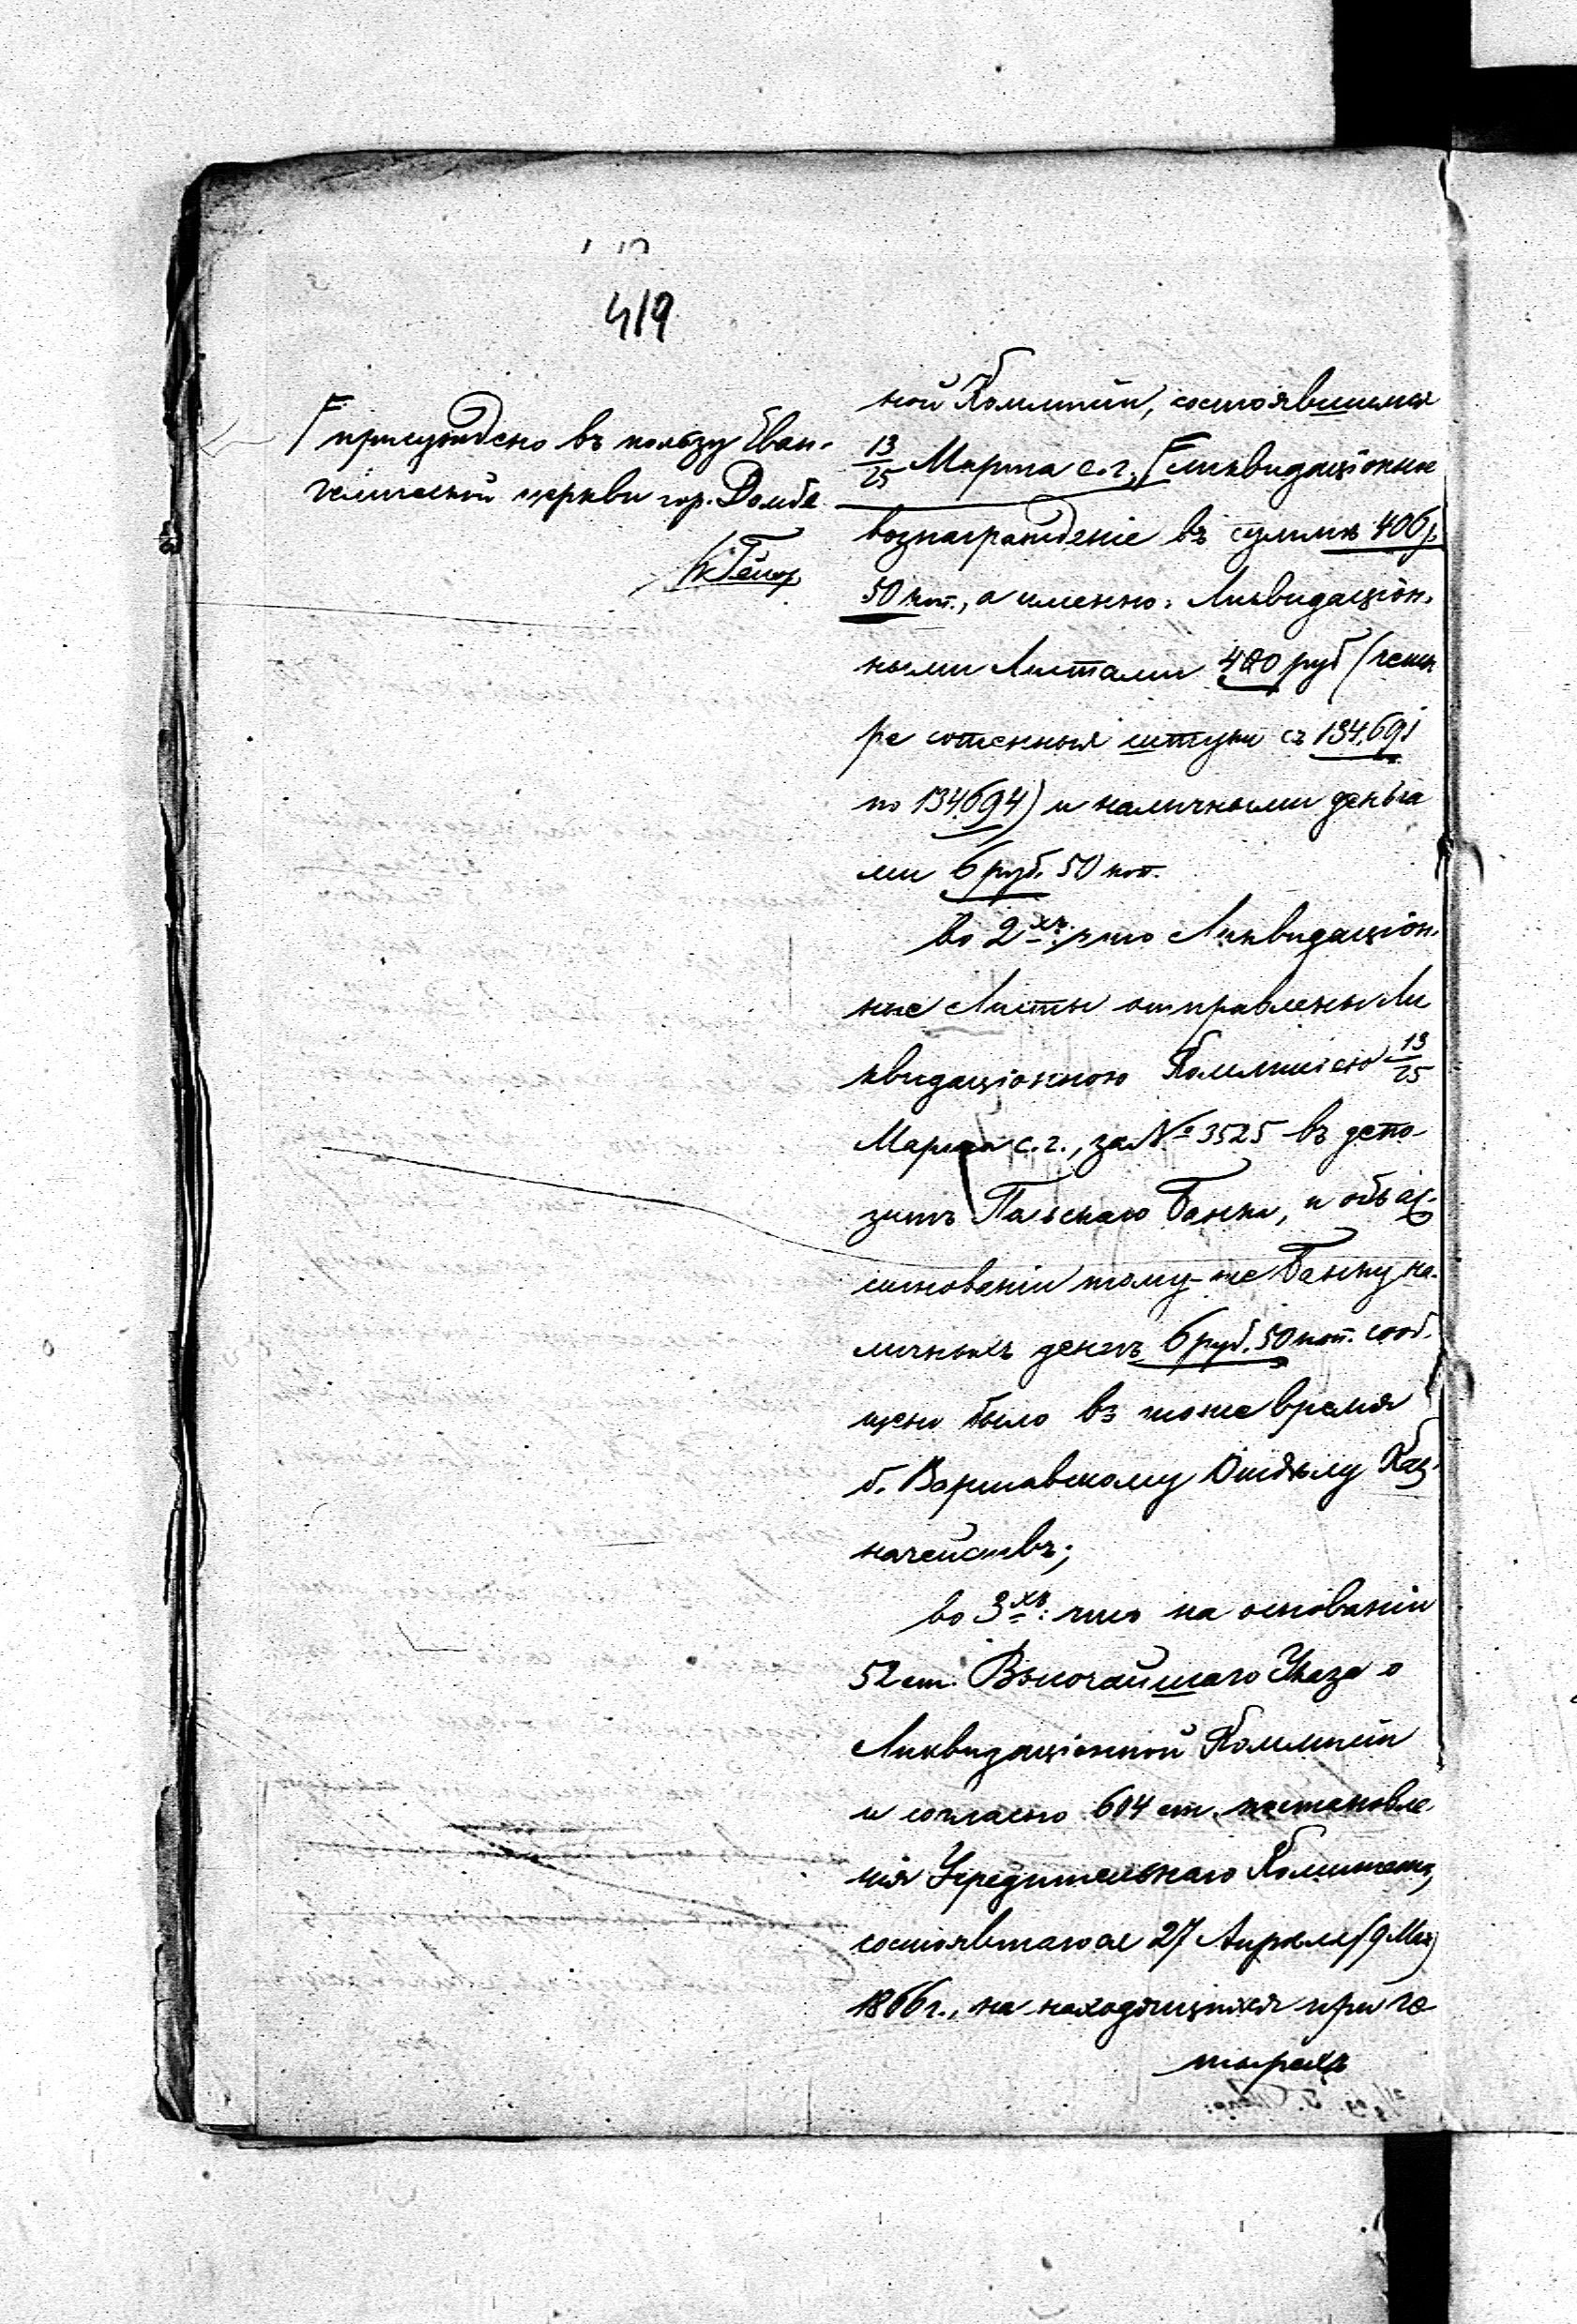 419
присуждено въ пользу Еван-
гелической церкви гор. Домбе
ной Коммисіи, состоявшимся
13/25 Марта с. г., ликвидаціонное
вознагражденіе въ суммѣ 406 р.
50 коп., а именно: Ликвидаціон-
ными Листами 400 руб (четы
ре сотенныя штуки съ 134,691
по 134694) и наличными деньга
ми 6 руб. 50 коп.
во 2хъ: что Ликвидаціон-
ные Листы отправлены Ли
квидаціонною Коммисіею 13/25
Марта с. г., за № 3525 въ депо-
зитъ Польскаго Банка, и объ ас-
сигнованіи тому-же Банку на-
личныхъ денегъ 6 руб. 50 коп. сооб-
щено было въ тоже время
б. Варшавскому Отдѣлу Каз-
начействъ;
во 3хъ: что на основаніи
52 ст. Высочайшаго Указа о
Ликвидаціонной Коммисіи
и согласно 604 ст. постановле-
нія Учредительнаго Комитета,
состоявшагося 27 Апрѣля (9 Мая)
1866 г., на находящихся при го